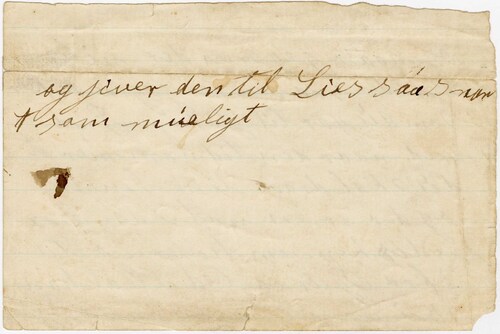 og jiver den til Lies såa snar
t som mueligt